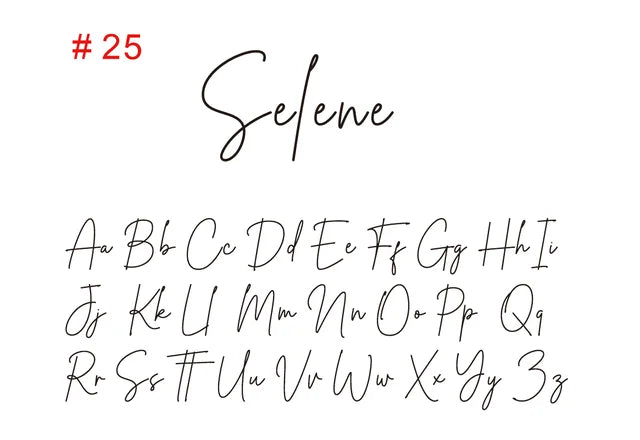 # 25
Selene
Aa Bb Cc Dd Ee Ff Gg Hh Ii
Jj Kk Ll Mm Nn Oo Pp Qq
Rr Ss Tt Uu Vv Ww Xx Yy Zz